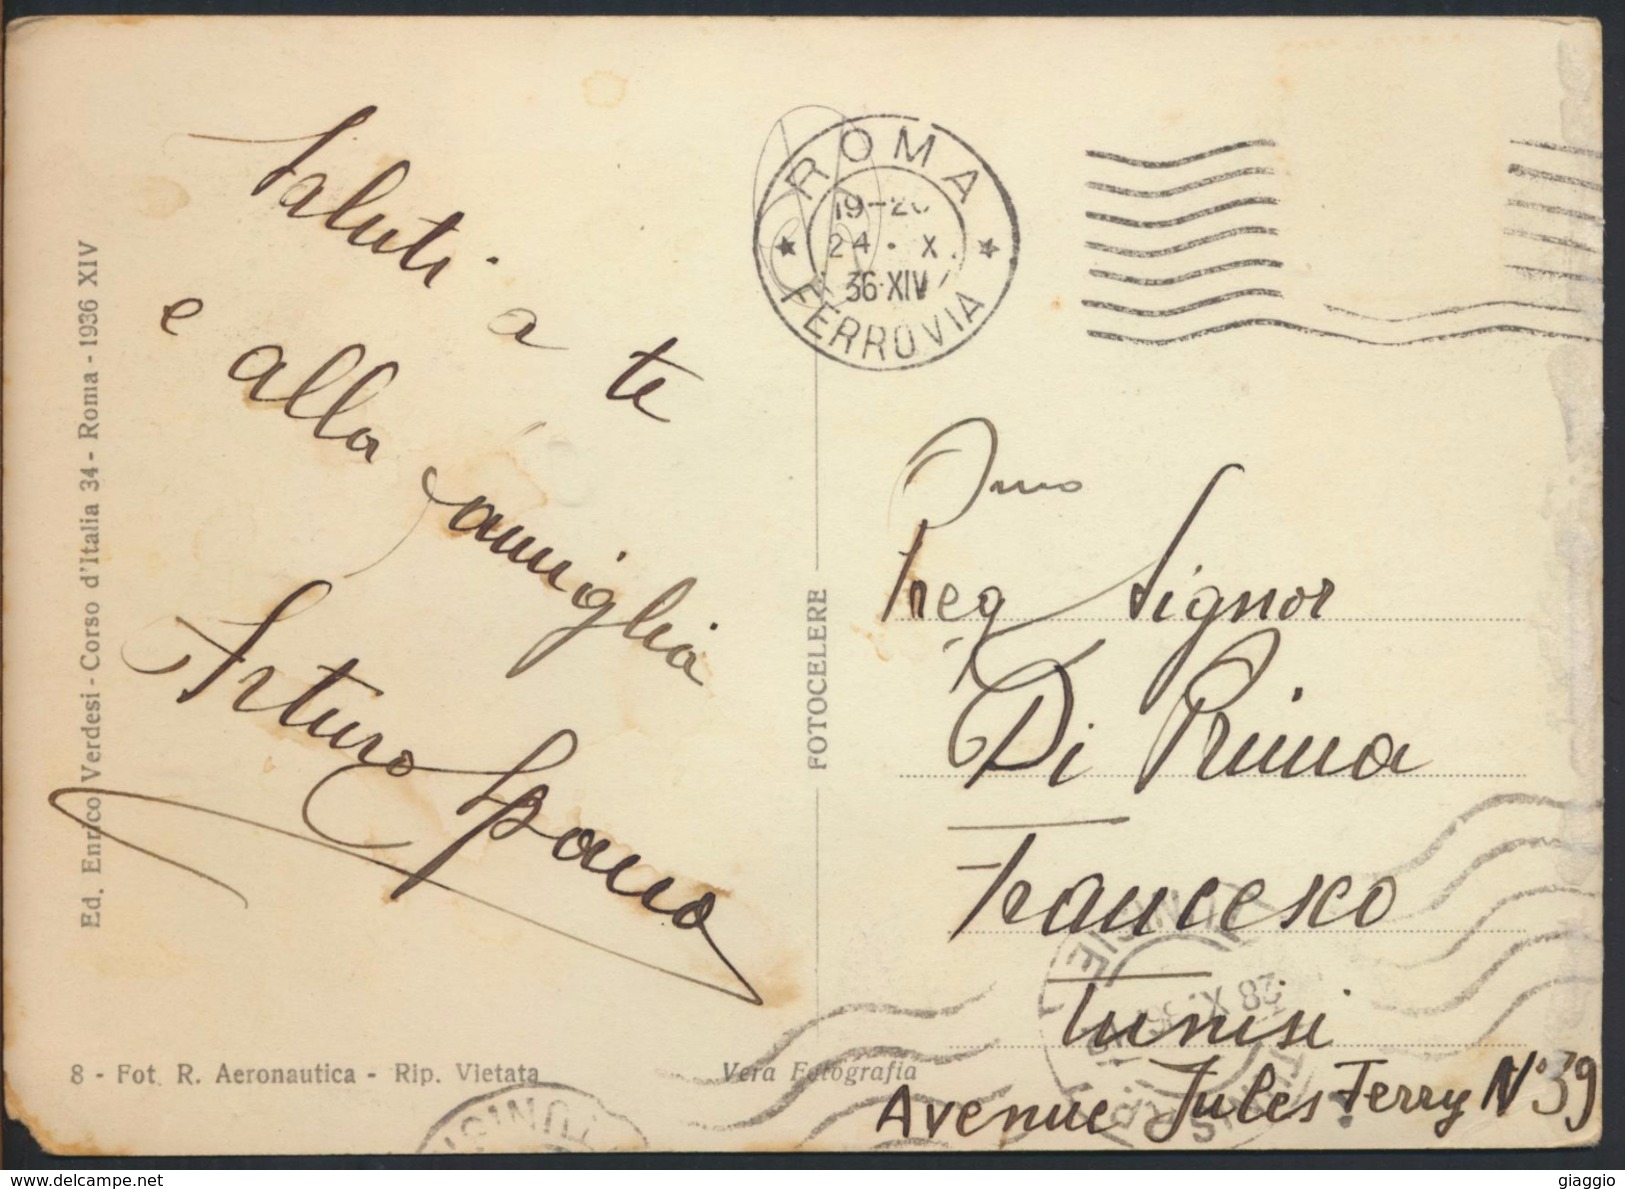 Saluti a te
e alla famiglia
Arturo Spano
Ed. Enrico Verdesi - Corso d'Italia 34 - Roma - 1936 XIV
8 - Fot. R. Aeronautica - Rip. Vietata
Vera Fotografia
FOTOCELERE
ROMA
19-20
24 · X.
36·XIV
FERROVIA
Preg Signor
Di Prima
Francesco
Tunisi
Avenue Jules Ferry N° 39
28 X
TUNISIE
giaggio